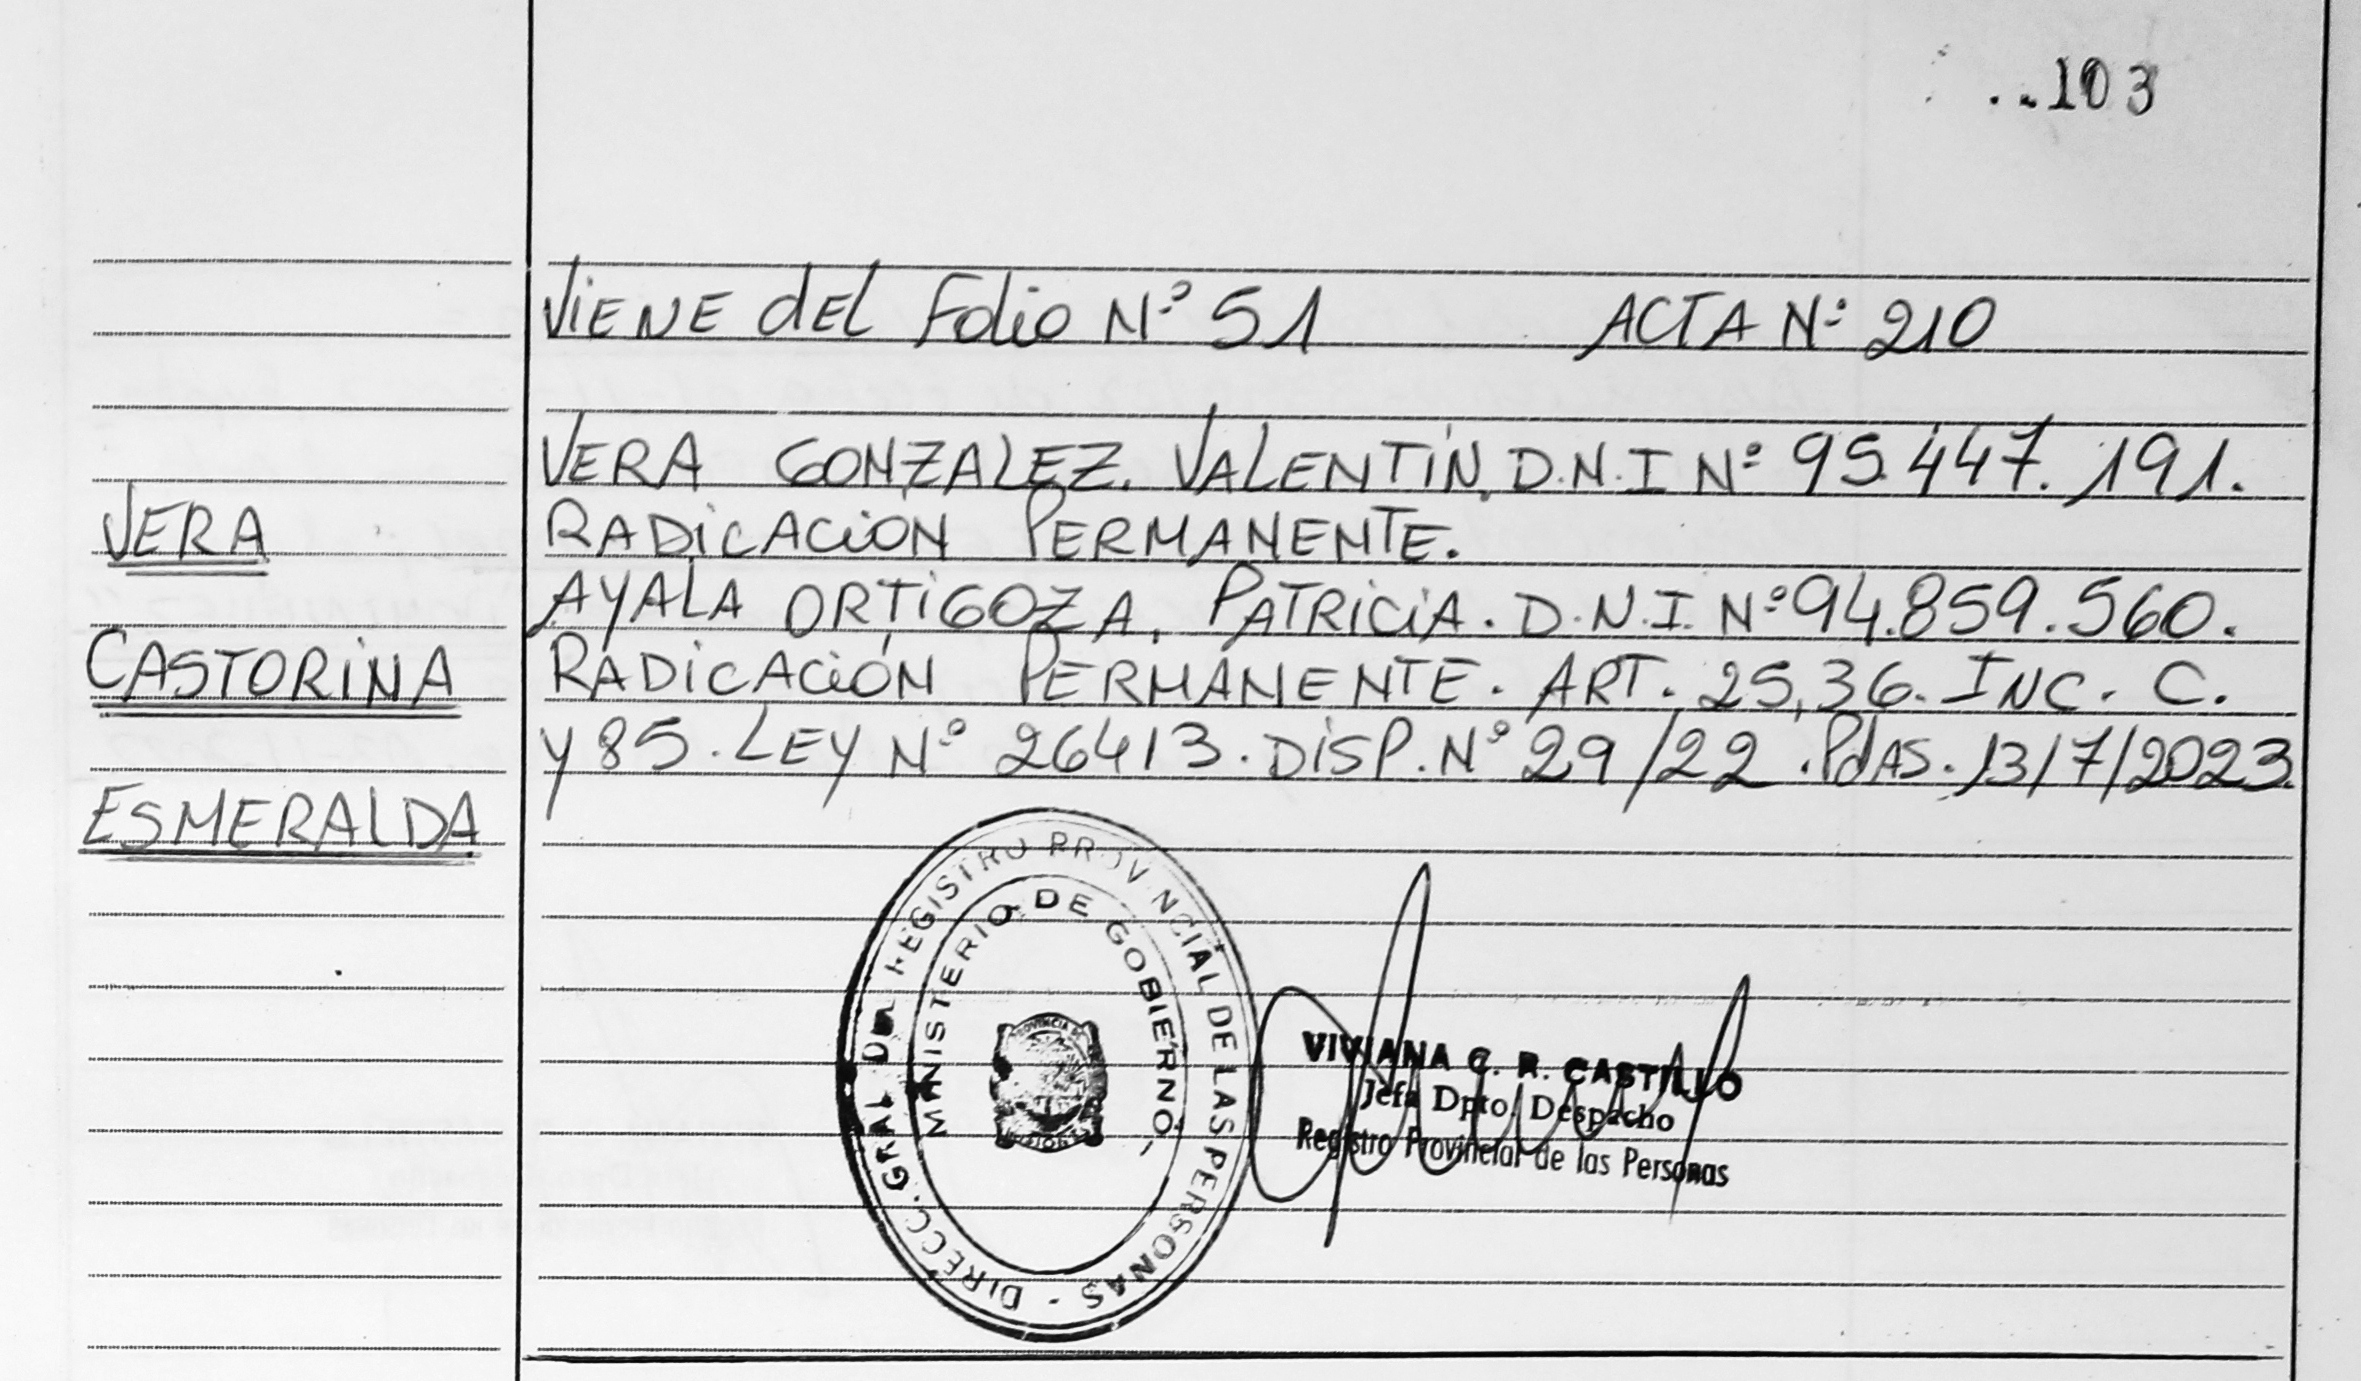 103
VIENE dEL Folio Nº 51 ACTA Nº 210
VERA GONZALEZ. VALENTIN. D.N.I Nº 95.447.191.
VERA
RADICACION PERMANENTE.
AYALA ORTIGOZA, PATRICIA. D.N.I. Nº 94.859.560.
CASTORINA
RADICACIÓN PERMANENTE. ART. 25,36. INC. C.
Y 85. LEY Nº 26413. DISP. Nº 29/22. PdAS. 13/7/2023.
ESMERALDA
DIRECC. GRAL DEL REGISTRO PROVINCIAL DE LAS PERSONAS -
MINISTERIO DE GOBIERNO-
PROVINCIA DE
VIVIANA C. R. CASTILLO
Jefa Dpto. Despacho
Registro Provincial de las Personas